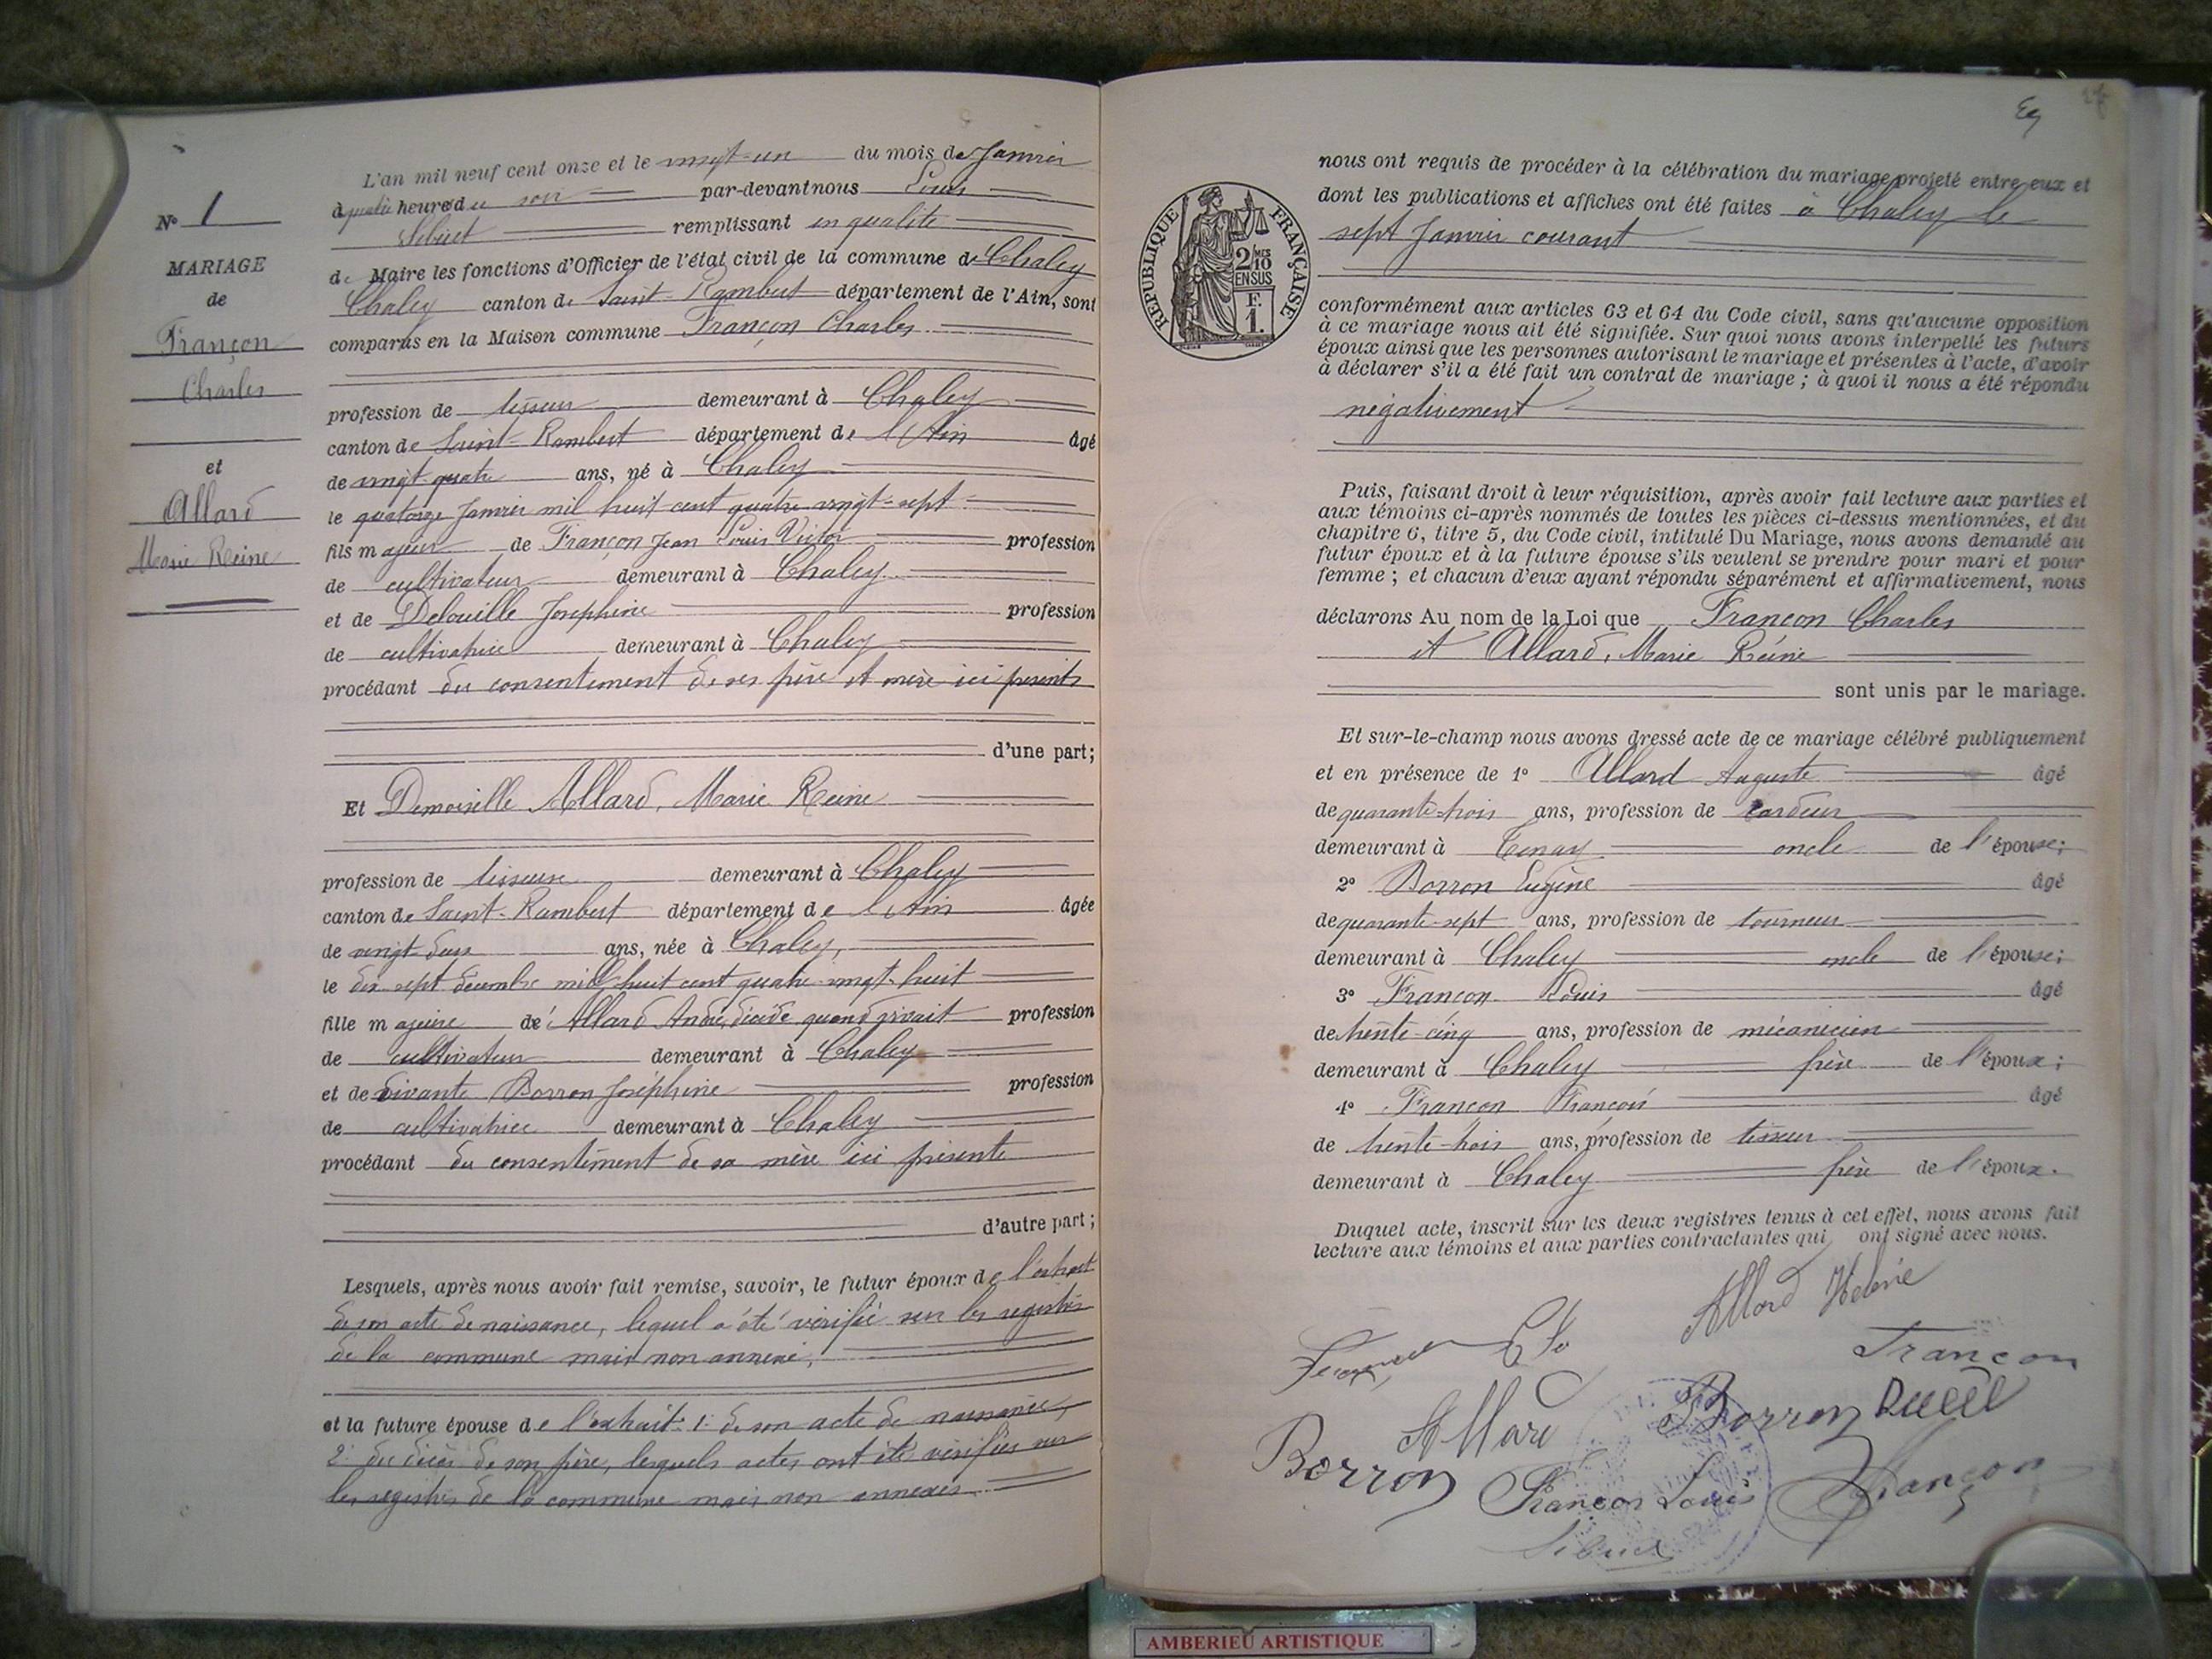 N° 1
MARIAGE
de
Françon
Charles
et
Allard
Marie Reine
L'an mil neuf cent onze et le vingt-un du mois de Janvier
à quatre heures du soir par-devant nous Louis
Sibuet remplissant en qualité
de Maire les fonctions d'Officier de l'état civil de la commune de Chaley
Chaley canton de Saint-Rambert département de l'Ain, sont
comparus en la Maison commune Françon Charles
profession de tisseur demeurant à Chaley
canton de Saint-Rambert département de l'Ain âgé
de vingt-quatre ans, né à Chaley
le quatorze Janvier mil huit cent quatre-vingt-sept
fils majeur de Françon Jean Louis Victor profession
de cultivateur demeurant à Chaley
et de Delouille Joséphine profession
de cultivatrice demeurant à Chaley
procédant du consentement de ses père et mère ici présents
d'une part;
Et Demoiselle Allard, Marie Reine
profession de tisseuse demeurant à Chaley
canton de Saint-Rambert département de l'Ain âgée
de vingt-deux ans, née à Chaley,
le dix-sept décembre mil huit cent quatre-vingt-huit
fille majeure de Allard André, décédé quand vivait profession
de cultivateur demeurant à Chaley
et de vivante Borron Joséphine profession
de cultivatrice demeurant à Chaley
procédant du consentement de sa mère ici présente
d'autre part;
Lesquels, après nous avoir fait remise, savoir, le futur époux de l'extrait
de son acte de naissance, lequel a été vérifié sur les registres
de la commune mais non annexé,
et la future épouse de l'extrait: 1: de son acte de naissance,
2: du décès de son père, lesquels actes ont été vérifiés sur
les registres de la commune mais non annexés
RÉPUBLIQUE FRANÇAISE
2/10 MES
EN SUS
F.
1.
nous ont requis de procéder à la célébration du mariage projeté entre eux et
dont les publications et affiches ont été faites à Chaley le
sept Janvier courant
conformément aux articles 63 et 64 du Code civil, sans qu'aucune opposition
à ce mariage nous ait été signifiée. Sur quoi nous avons interpellé les futurs
époux ainsi que les personnes autorisant le mariage et présentes à l'acte, d'avoir
à déclarer s'il a été fait un contrat de mariage; à quoi il nous a été répondu
négativement
Puis, faisant droit à leur réquisition, après avoir fait lecture aux parties et
aux témoins ci-après nommés de toutes les pièces ci-dessus mentionnées, et du
chapitre 6, titre 5, du Code civil, intitulé Du Mariage, nous avons demandé au
futur époux et à la future épouse s'ils veulent se prendre pour mari et pour
femme; et chacun d'eux ayant répondu séparément et affirmativement, nous
déclarons Au nom de la Loi que Françon Charles
et Allard, Marie Reine
sont unis par le mariage.
Et sur-le-champ nous avons dressé acte de ce mariage célébré publiquement
et en présence de 1° Allard Auguste âgé
de quarante-trois ans, profession de cardeur
demeurant à Tenay oncle de l'épouse;
2° Borron Eugène âgé
de quarante-sept ans, profession de tourneur
demeurant à Chaley oncle de l'épouse;
3° Françon Louis âgé
de trente-cinq ans, profession de mécanicien
demeurant à Chaley frère de l'époux;
4° Françon François âgé
de trente-trois ans, profession de tisseur
demeurant à Chaley frère de l'époux.
Duquel acte, inscrit sur les deux registres tenus à cet effet, nous avons fait
lecture aux témoins et aux parties contractantes qui ont signé avec nous.
Allard
Françon
Allard Borron
Borron Françon Louis Françon
Sibuet
AMBERIEU ARTISTIQUE